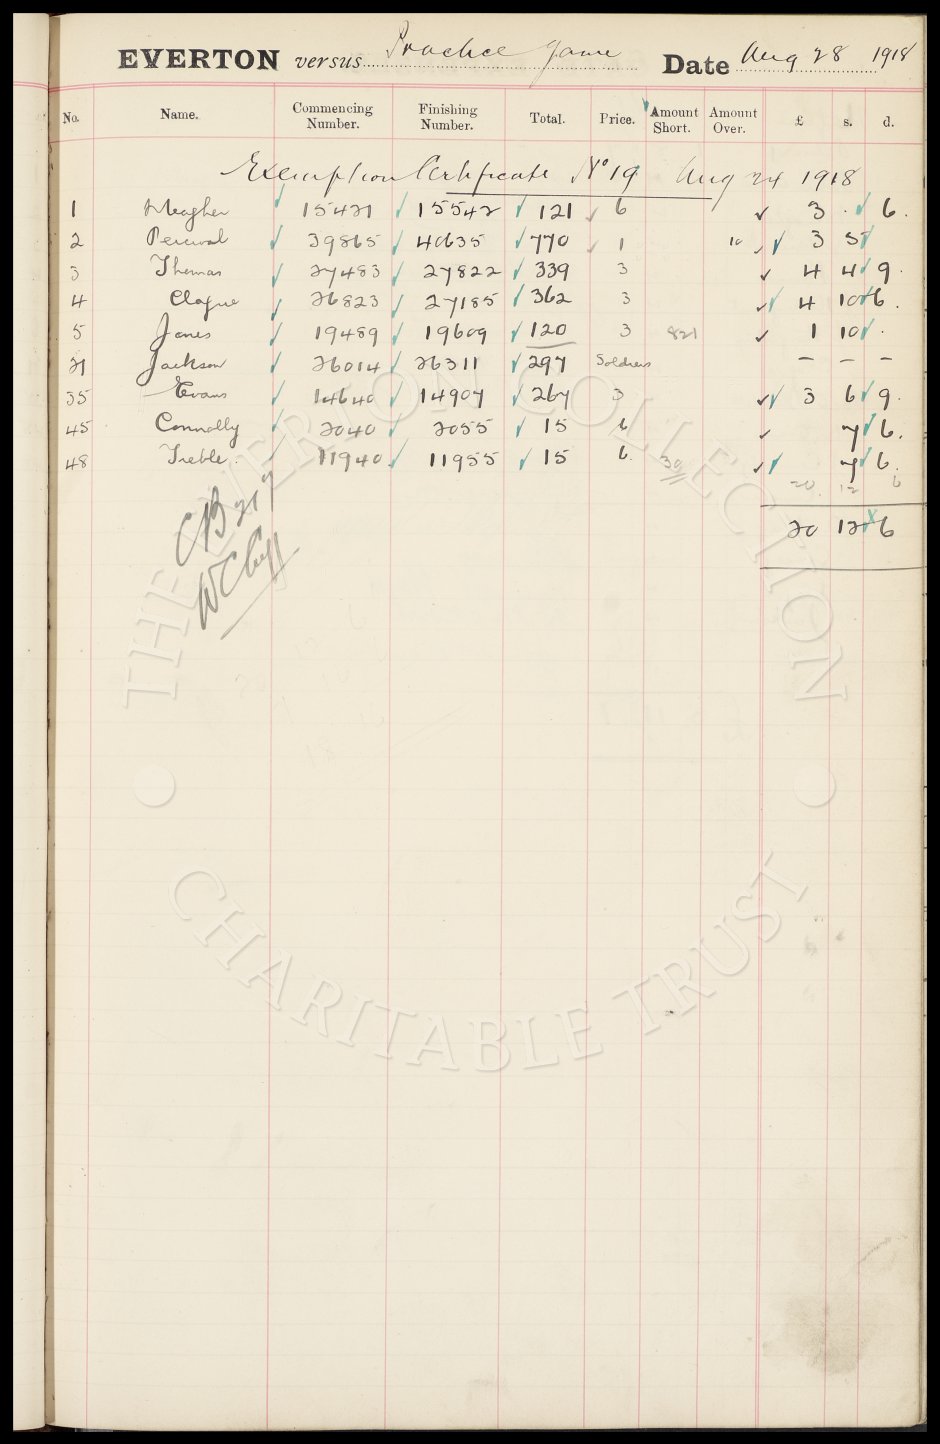 EVERTON versus Practice Game Date Aug 28 1918
No. Name. Commencing Number. Finishing Number. Total. Price. Amount Short. Amount Over. £ s. d.
Exemption Certificate No 19 Aug 24 1918
1 Meagher 15421 15542 121 6 3 . 6.
2 Percival 39865 40635 770 1 10 3 5
3 Thomas 27483 27822 339 3 4 4 9.
4 Clague 26823 27185 362 3 4 10 6.
5 Jones 19489 19609 120 3 1 10 .
21 Jackson 26014 26311 297 Soldiers – – –
35 Evans 14640 14907 267 3 3 6 9.
45 Connolly 2040 2055 15 6 7 6.
48 Treble. 11940 11955 15 6 30 7 6.
20 12 6
20 12 6
CB 217
THE EVERTON COLLECTION
CHARITABLE TRUST